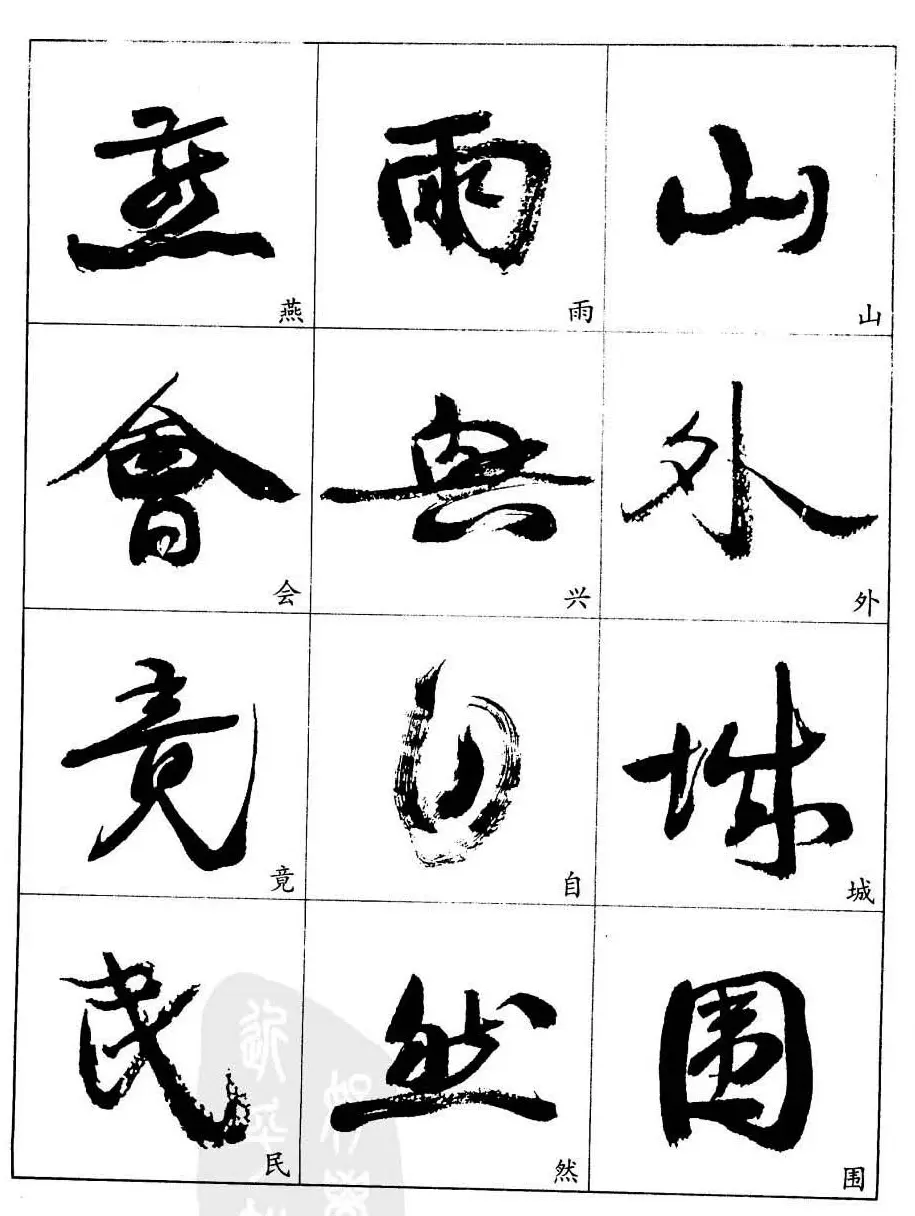 山
山
外
外
城
城
围
围
雨
雨
興
兴
自
自
然
然
燕
燕
會
会
竟
竟
民
民